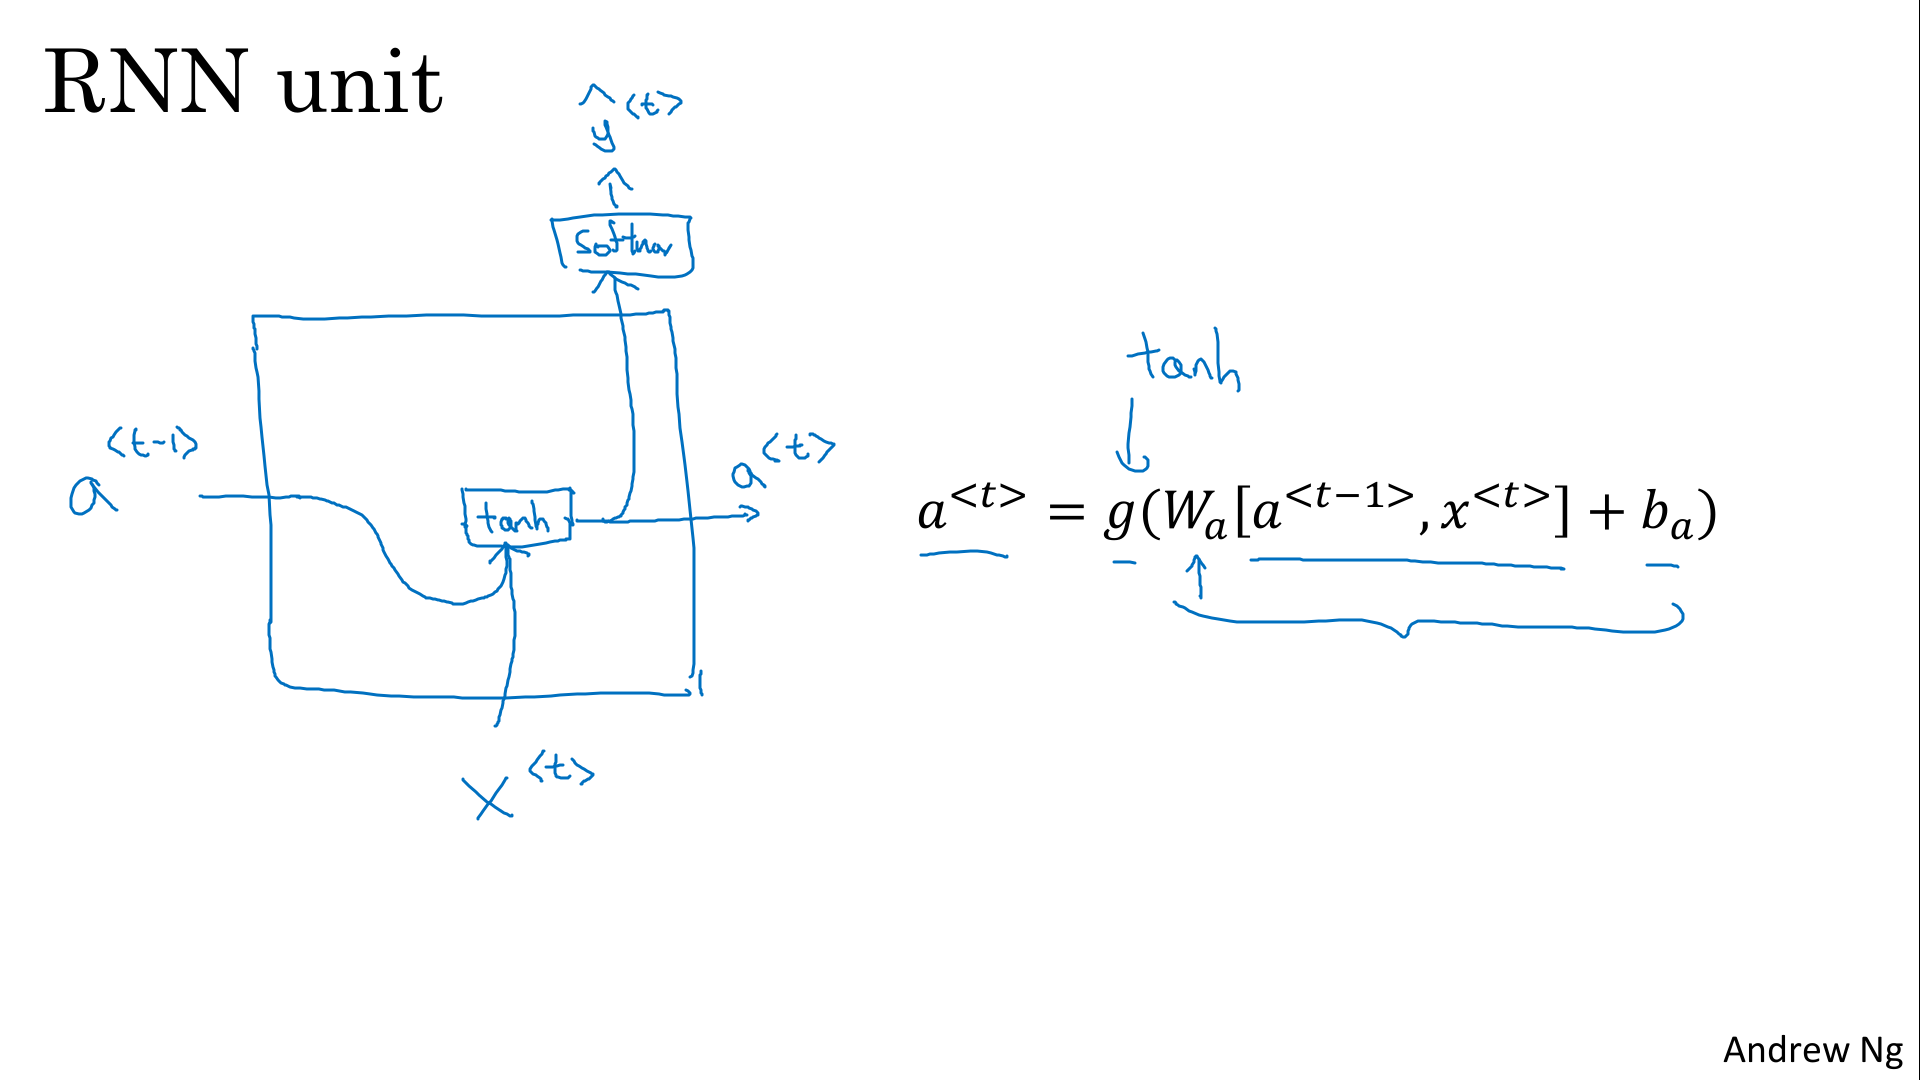 RNN unit
ŷ<t>
softmax
tanh
a<t-1>
a<t>
tanh
a<t> = g(Wₐ[a<t−1>, x<t>] + bₐ)
x<t>
Andrew Ng